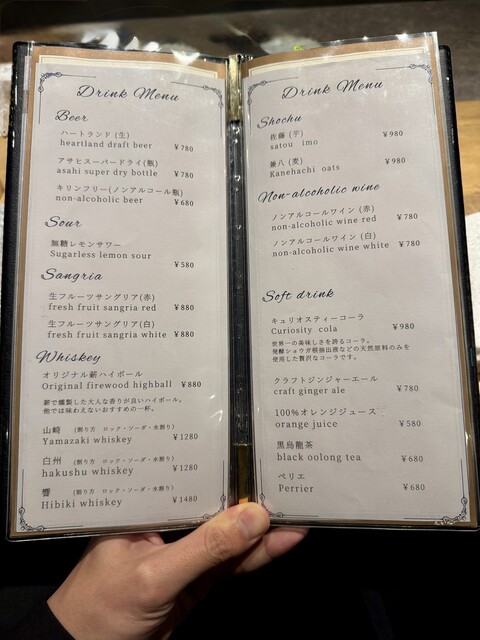 Drink Menu
Beer
ハートランド (生)
heartland draft beer ¥780
アサヒスーパードライ(瓶)
asahi super dry bottle ¥780
キリンフリー(ノンアルコール瓶)
non-alcoholic beer ¥680
Sour
無糖レモンサワー
Sugarless lemon sour
¥580
Sangria
生フルーツサングリア(赤)
fresh fruit sangria red ¥880
生フルーツサングリア(白)
fresh fruit sangria white ¥880
Whiskey
オリジナル薪ハイボール
Original firewood highball ¥880
薪で燻製した大人な香りが良いハイボール。
他では味わえないおすすめの一杯。
山崎 (割り方 ロック・ソーダ・水割り)
Yamazaki whiskey ¥1280
白州 (割り方 ロック・ソーダ・水割り)
hakushu whiskey ¥1280
響 (割り方 ロック・ソーダ・水割り)
Hibiki whiskey ¥1480
Drink Menu
Shochu
佐藤 (芋) ¥980
satou imo
兼八 (麦) ¥980
Kanehachi oats
Non-alcoholic wine
ノンアルコールワイン (赤)
non-alcoholic wine red ¥780
ノンアルコールワイン (白)
non-alcoholic wine white ¥780
Soft drink
キュリオスティーコーラ
Curiosity cola ¥980
世界一の美味しさを誇るコーラ。
発酵ショウガ根抽出液などの天然原料のみを
使用した贅沢なコーラです。
クラフトジンジャーエール
craft ginger ale ¥780
100%オレンジジュース
orange juice ¥580
黒烏龍茶
black oolong tea ¥680
ペリエ
Perrier ¥680